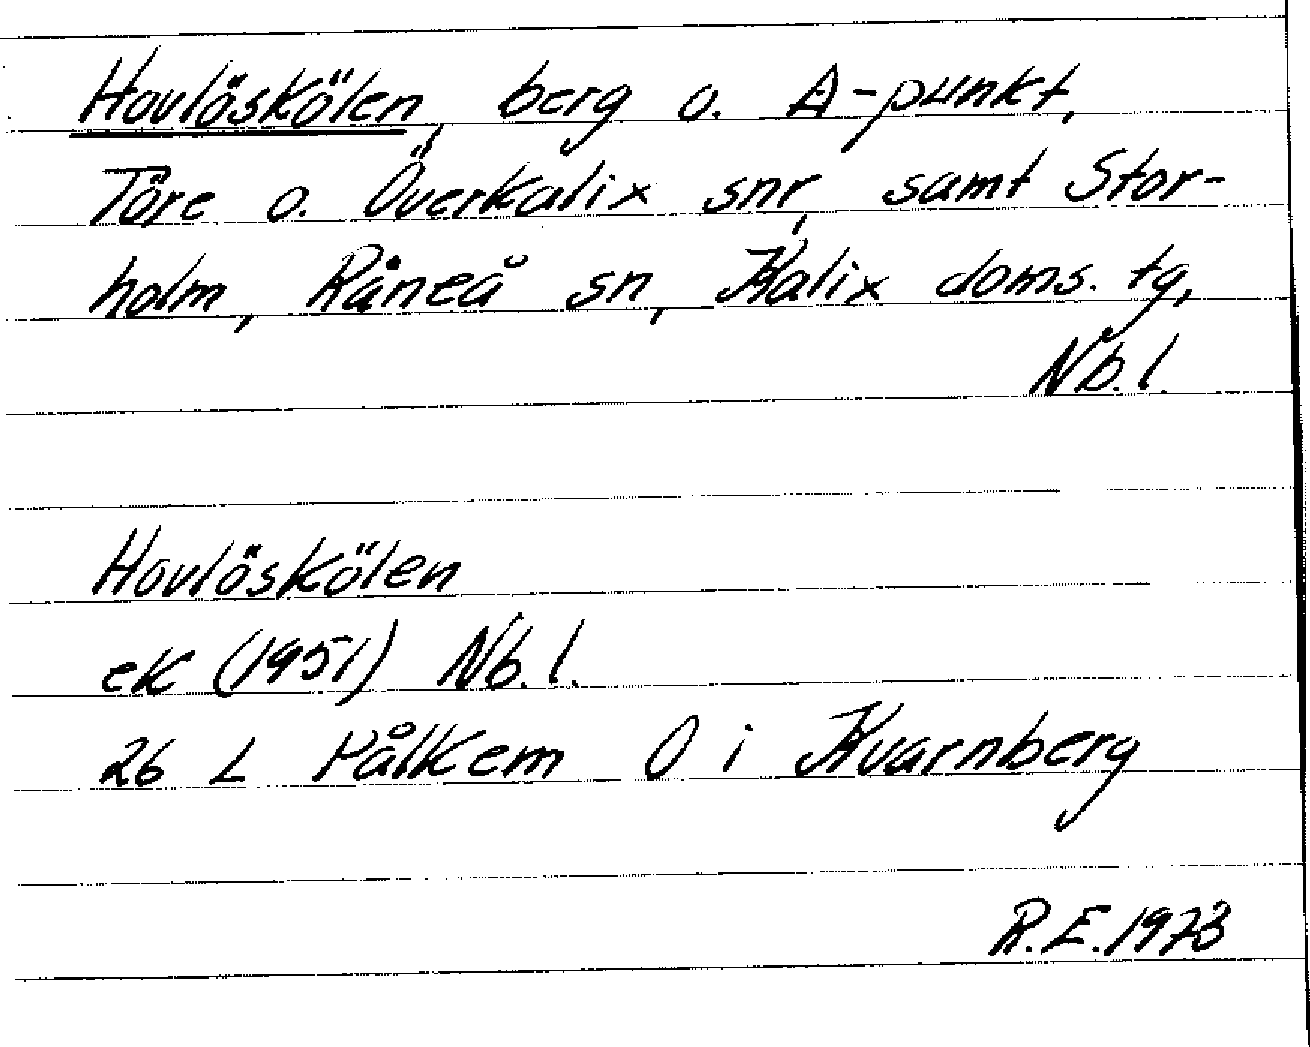 Hovlöskölen, berg o. A-punkt,
Töre o. Överkalix snr, samt Stor-
holm, Råneå sn, Kalix doms. tg,
Nb. l.
Hovlöskölen
ek (1951) Nb. l.
26 L Pålkem O i Kvarnberg
R.E. 1973